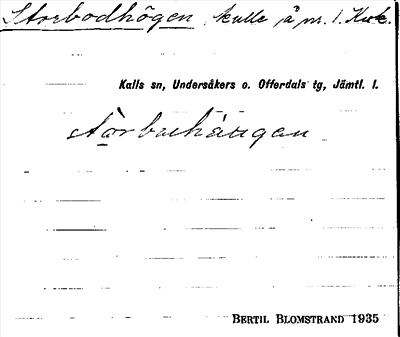 Storbodhögen, kulle å nr. 1. Kak.
Kalls sn, Undersåkers o. Offerdals tg, Jämtl. l.
BERTIL BLOMSTRAND 1935